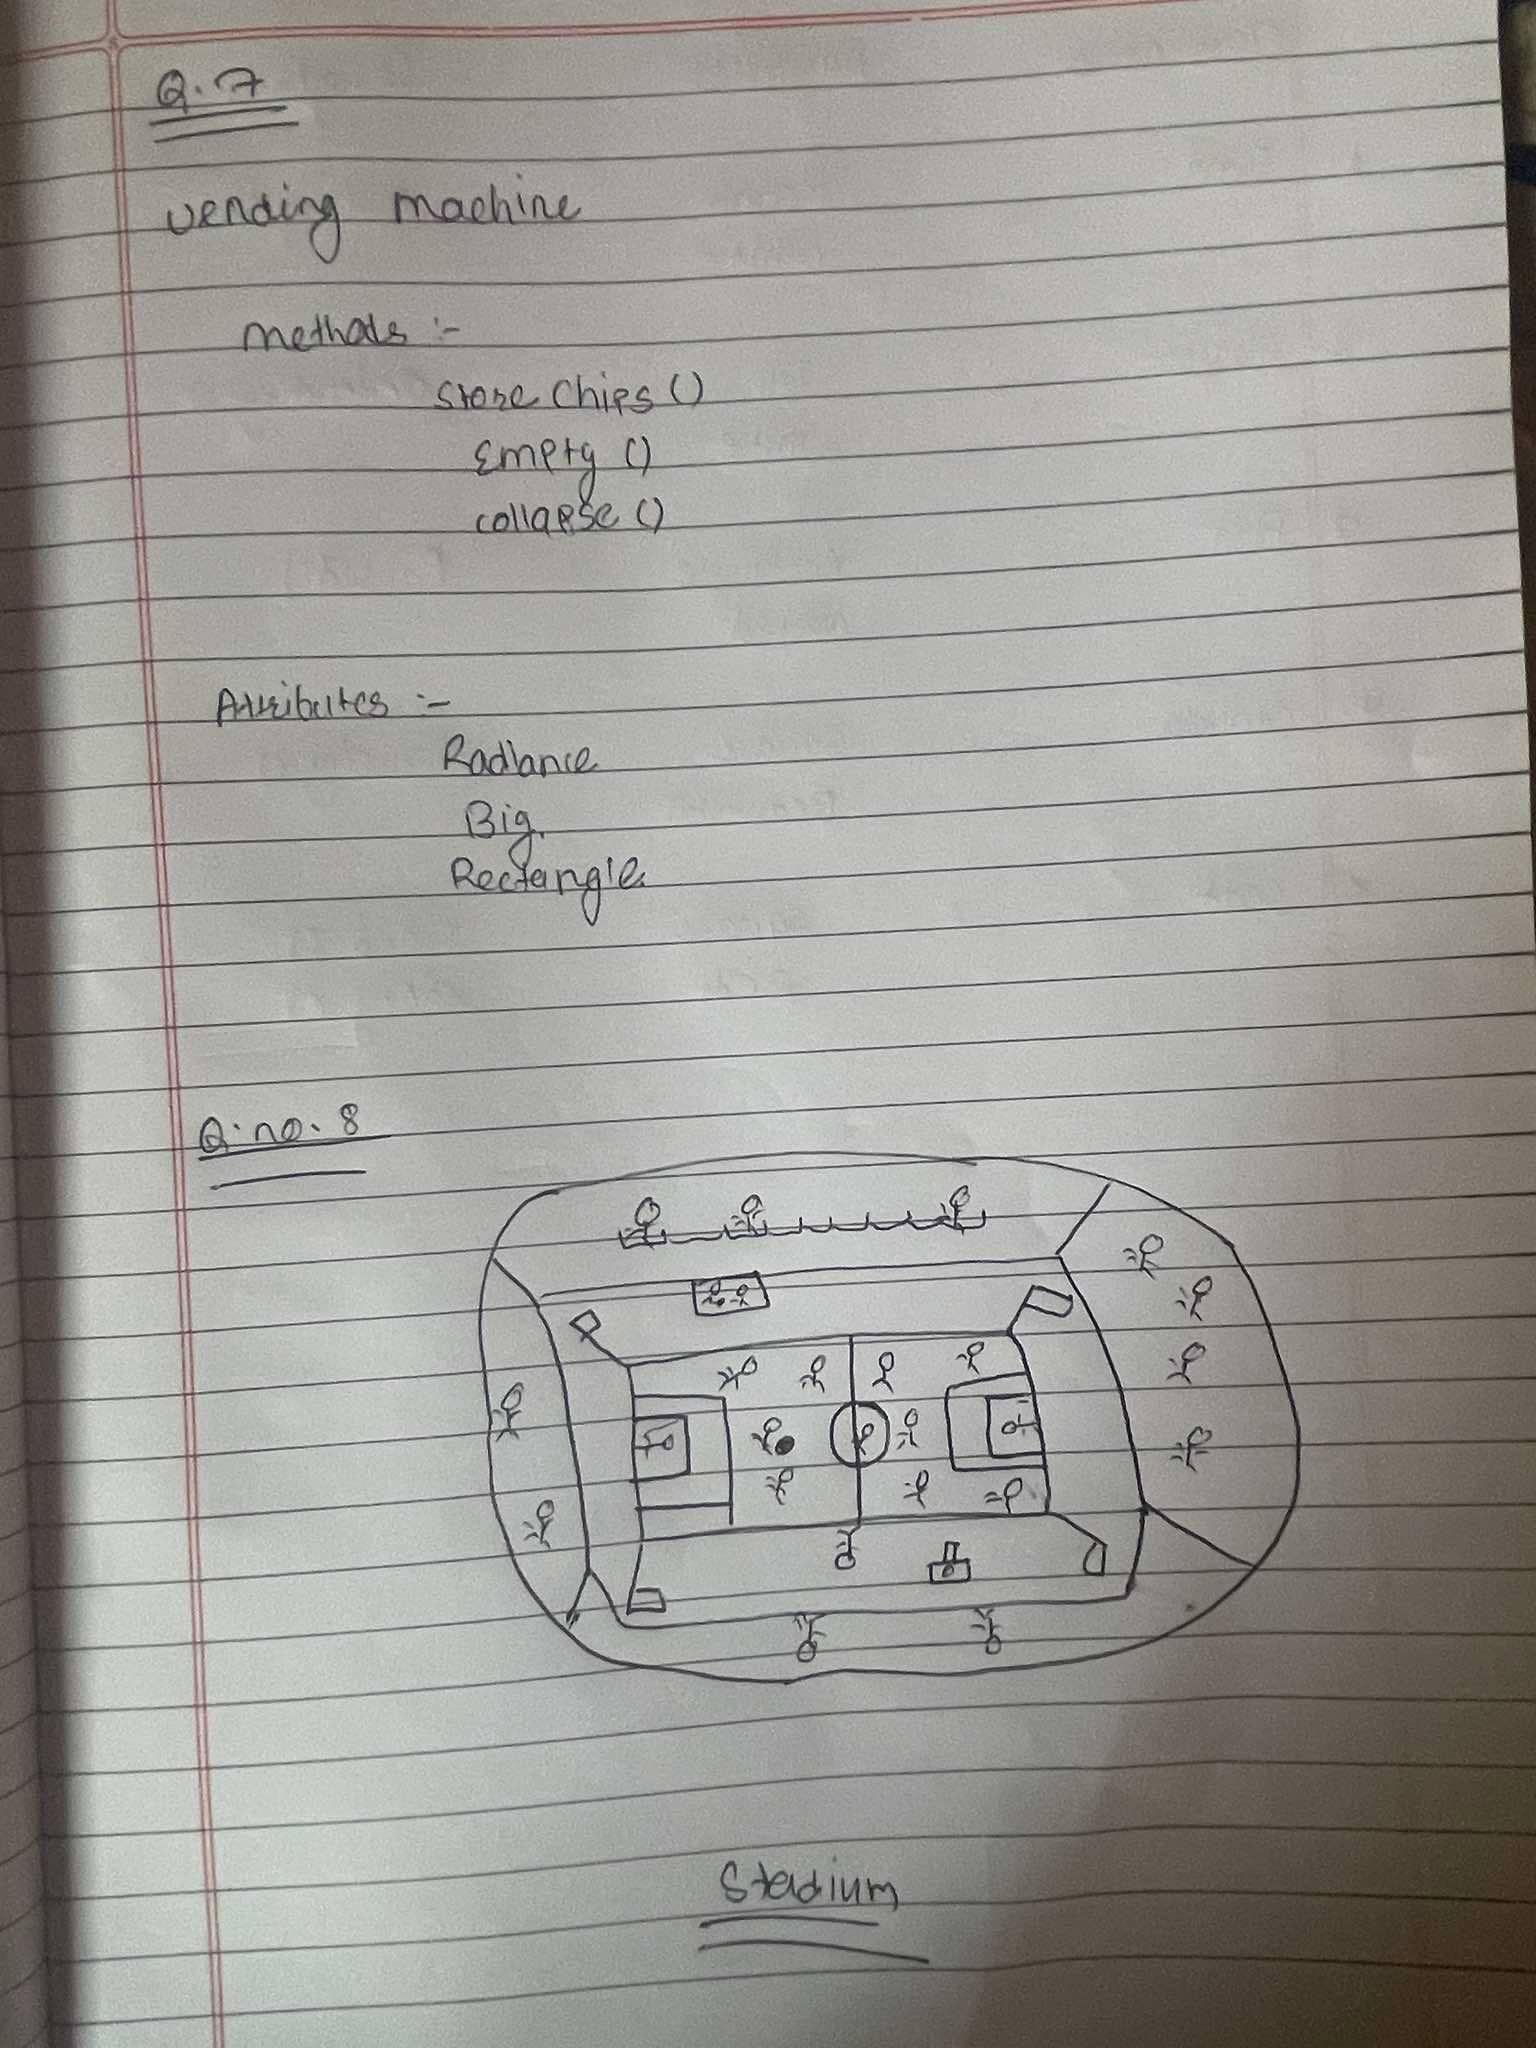 Q.7
vending machine
Methods :-
Store Chips ()
Empty ()
collapse ()
Attributes :-
Radiance
Big.
Rectangle.
Q.no.8
Stadium